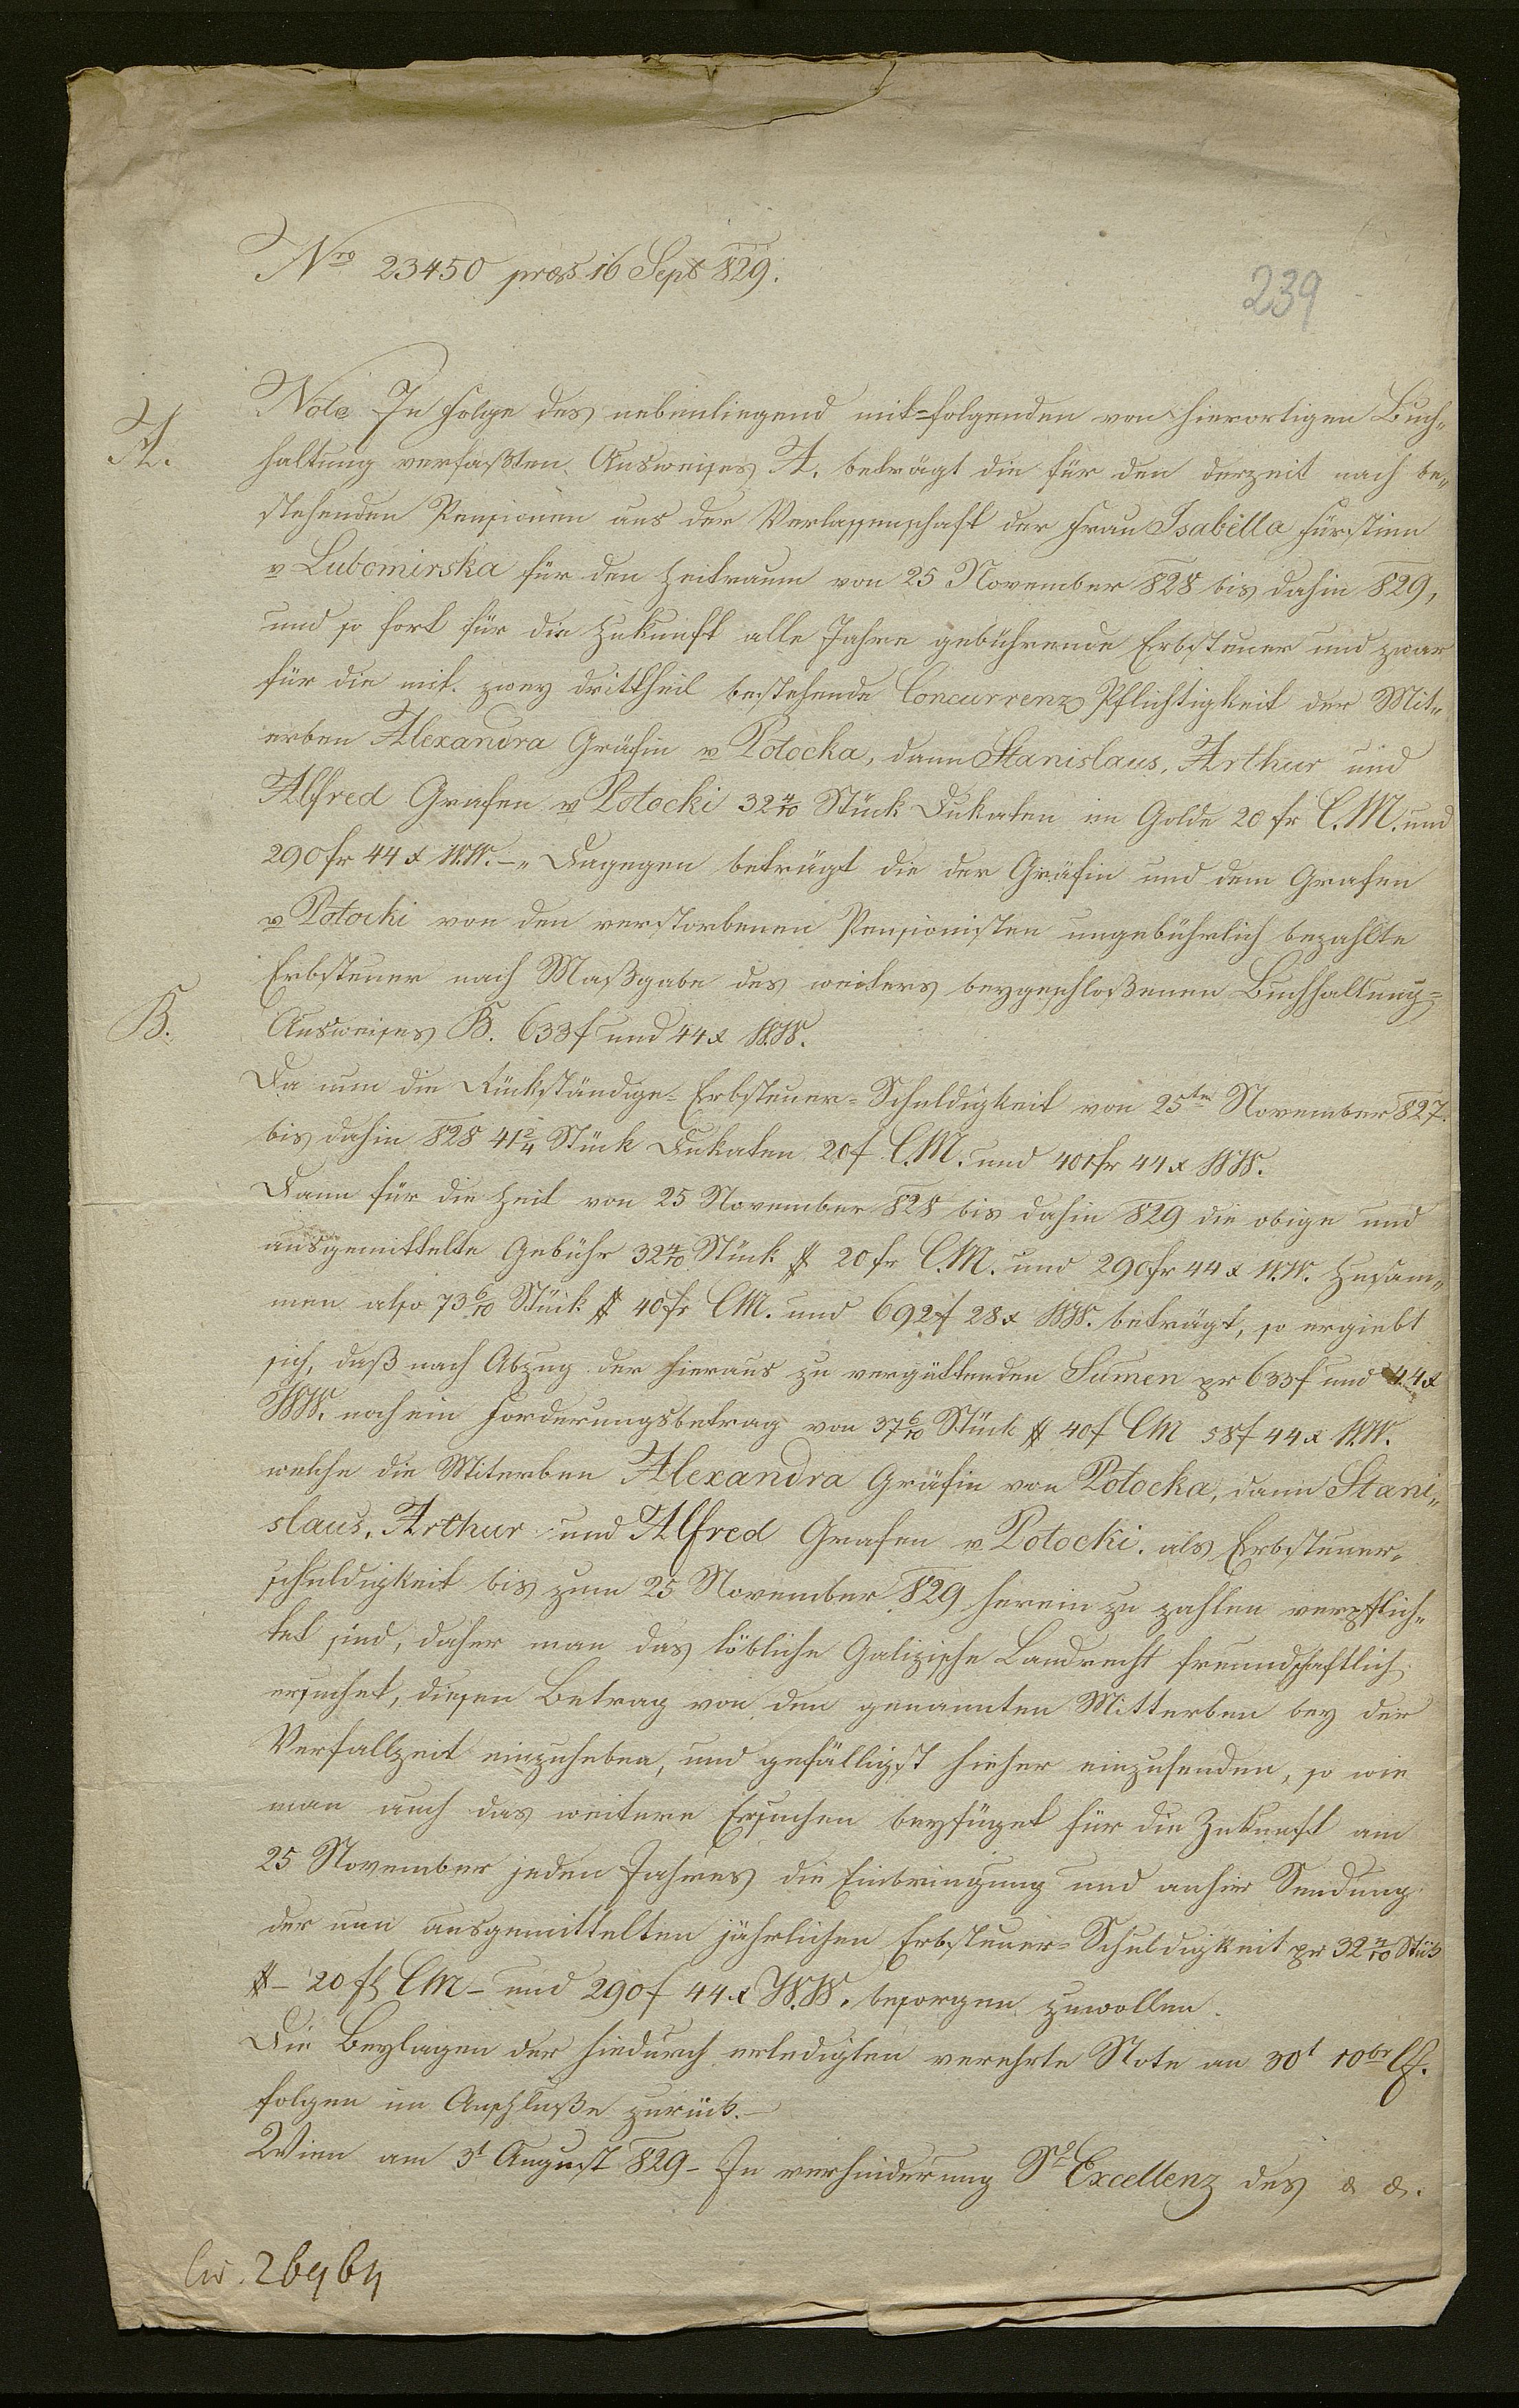 Nro 23450 præs 16 Sept 829.
239
Note In Folge des nebenliegend mit-folgenden von hierortigen Buch„
A. haltung verfaßten Ausweises A. beträgt die für den derzeit noch be„
stehenden Pensionen aus der Verlassenschaft der Frau Isabella Fürstinn
v Lubomirska für den Zeitraum von 25 November 828 bis dahin 829,
und so fort für die Zukunft alle Jahre gebührende Erbsteuer und zwar
für die mit zwey drittheil bestehende Concurrenz Pflichtigkeit der Mit„
erben Alexandra Gräfin v Potocka, dann Stanislaus, Arthur und
Alfred Grafen v Potocki 32 4/10 Stück Dukaten im Golde 20 fr C.M. und
290 fr 44 x W.W. –„ Dagegen beträgt die der Gräfin und dem Grafen
v Potocki von den verstorbenen Pensionisten ungebührlich bezahlte
Erbsteuer nach Maßgabe des weiters beygeschloßenen Buchhaltung=
B. Ausweises B. 633 f und 44 x W.W.
Da nun die Rückständige-Erbsteuer-Schuldigkeit von 25ten November 827.
bis dahin 828 41 2/4 Stück Dukaten 20 f C.M. und 401 fr 44 x WW.
Dann für die Zeit von 25 November 828 bis dahin 829 die obige und
ausgemittelte Gebühr 32 4/10 Stück # 20 fr C.M. und 290 fr 44 x W.W. Zusam„
men also 73 6/10 Stück # 40 fr CM. und 692 f 28 x WW. beträgt, so ergiebt
sich, daß nach Abzug der hieraus zu vergüttenden Sumen pr 633 f und 44 x
WW. noch ein Forderungsbetrag von 37 6/10 Stück # 40 f CM 58 f 44 x W.W.
welche die Miterben Alexandra Gräfin von Potocka, dann Stani„
slaus, Arthur und Alfred Grafen v Potocki. als Erbsteuer-
schuldigkeit bis zum 25 November 829 herein zu zahlen verpflich„
tet sind, daher man das löbliche Galizische Landrecht freundschaftlich
ersuchet, diesen Betrag von den genannten Mitterben bey der
Verfallzeit einzuheben, und gefälligst hieher einzusenden, so wie
man auch das weitere Ersuchen beyfüget für die Zukunft am
25 November jeden Jahres die Einbringung und anhier Sendung
der nun ausgemittelten jährlichen Erbsteuer-Schuldigkeit pr 32 4/10 Stück
# – 20 f CM – und 290 f 44 x W.W. besorgen zuwollen.
Die Beylagen der hiedurch erledigten verehrte Note an 30t 10br
folgen im Anschluße zurück. –
Wien am 3t August 829 – In verhinderung Sr Excellenz des & &.
26464